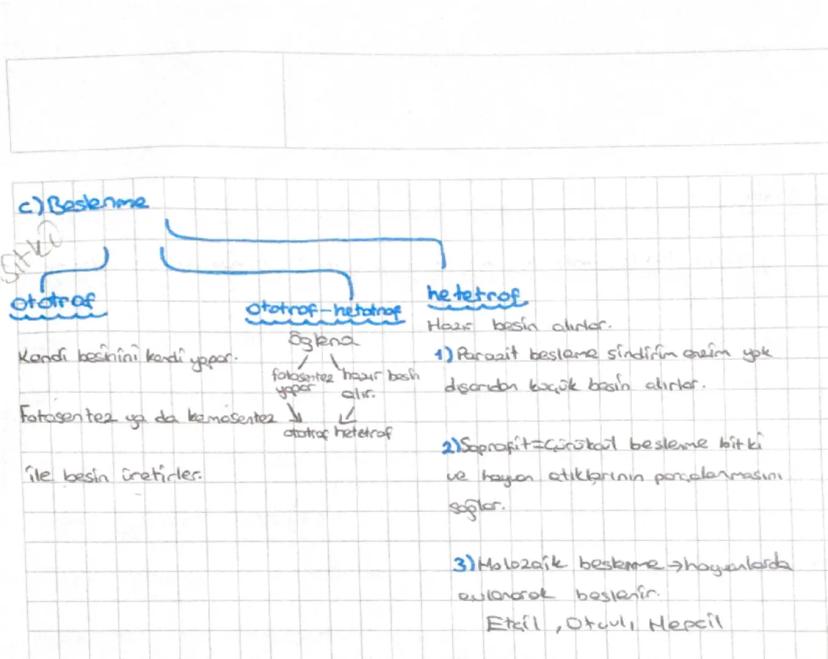 c) Beslenme
Sıtkı
ototrof
ototrof-hetotrof
hetetrof
Kendi besinini kendi yapar.
Fotosentez ya da kemosentez
ile besin üretirler.
öglena
fotosentez hazır besin
yapar alır.
ototrof hetetrof
Hazır besin alırlar.
1) Parazit besleme sindirim enzim yok
dışarıdan küçük besin alırlar.
2) Saprofit=Çürükçül besleme bitki
ve hayvan atıklarının parçalanmasını
sağlar.
3) Holozoik beslenme → hayvanlarda
avlanarak beslenir.
Etçil, Otçul, Hepçil